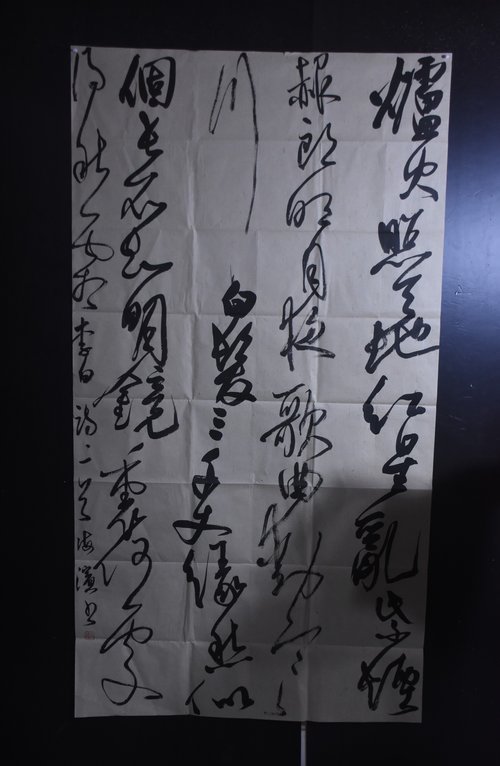 爐火照天地紅星亂紫煙
赧郎明月夜歌曲動寒
川 白髮三千丈緣愁似
個長不知明鏡裏何處
得秋霜 李白詩二首 海濱書